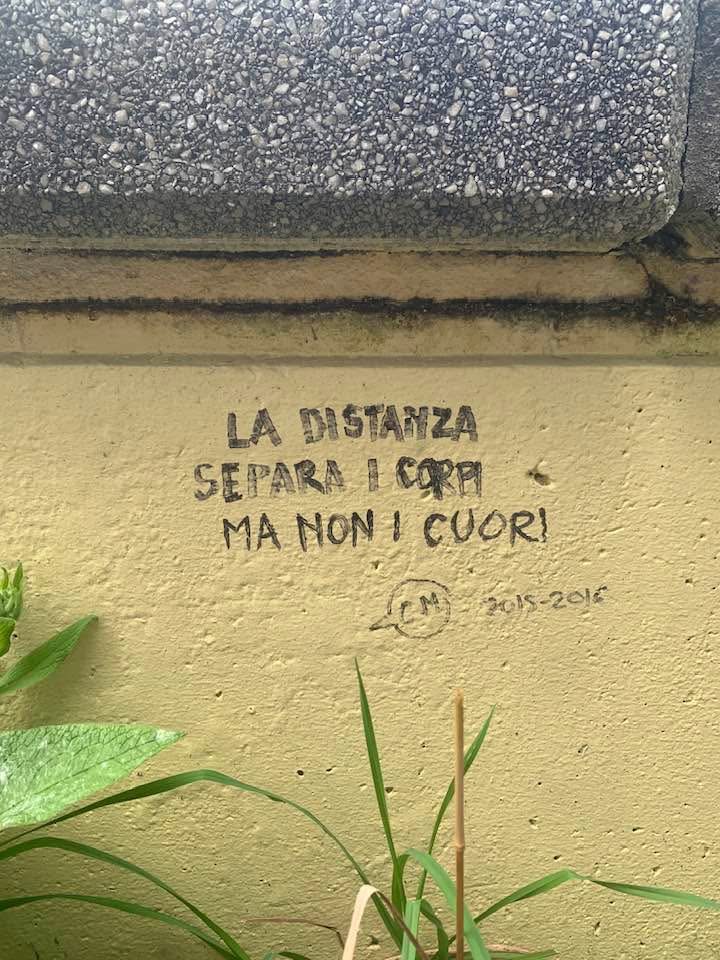 LA DISTANZA
SEPARA I CORPI
MA NON I CUORI
2015-2016